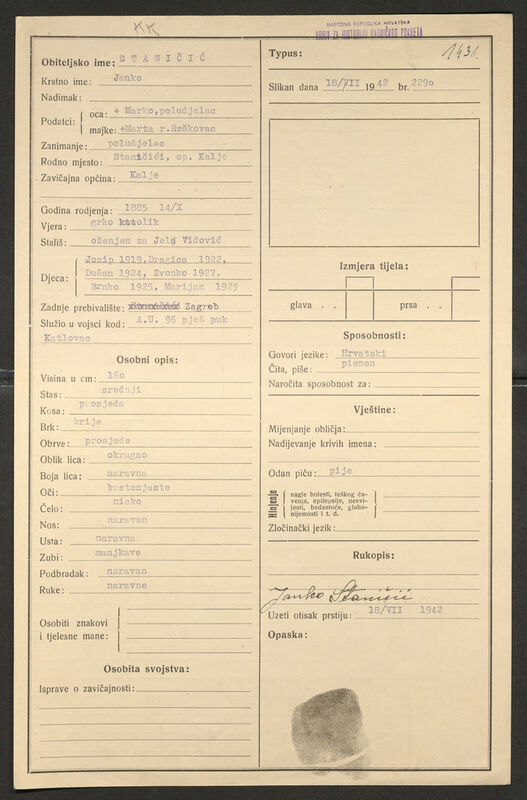 KK
NARODNA REPUBLIKA HRVATSKA
ARHIV ZA HISTORIJU RADNIČKOG POKRETA
Obiteljsko ime: STANIČIĆ
Krstno ime: Janko
Nadimak:
Podatci: oca: + Marko,poludjelac
majke: +Marta r.Reškovac
Zanimanje: poludjelac
Rodno mjesto: Staničići, op. Kalje
Zavičajna općina: Kalje
Godina rodjenja: 1885 14/X
Vjera: grko katolik
Stališ: oženjen sa Jelå Vidović
Djeca: Josip 1919,Dragica 1922,
Dušan 1924, Zvonko 1927,
Brnko 1925, Marijan 1923
Zadnje prebivalište: Zagreb
Služio u vojsci kod: A.U. 96 pješ puk
Katlovac
Osobni opis:
Visina u cm: 160
Stas: srednji
Kosa: prosjeda
Brk: brije
Obrve: prosjede
Oblik lica: okrugao
Boja lica: naravna
Oči: kestenjaste
Čelo: nisko
Nos: naravan
Usta: naravna
Zubi: manjkave
Podbradak: naravan
Ruke: naravne
Osobiti znakovi
i tjelesne mane:
Osobita svojstva:
Isprave o zavičajnosti:
Typus: 1431.
Slikan dana 18/VII 1942 br. 2290
Izmjera tijela:
glava . . prsa . .
Sposobnosti:
Govori jezike: Hrvatski
Čita, piše: pismen
Naročita sposobnost za:
Vještine:
Mijenjanje obličja:
Nadijevanje krivih imena:
Odan piću: pije
Hinjenje nagle bolesti, teškog ču-
venja, epilepsije, nesvi-
jesti, bedastoće, gluho-
nijemosti i t. d.
Zločinački jezik:
Rukopis:
Janko Staničić
Uzeti otisak prstiju: 18/VII 1942
Opaska: